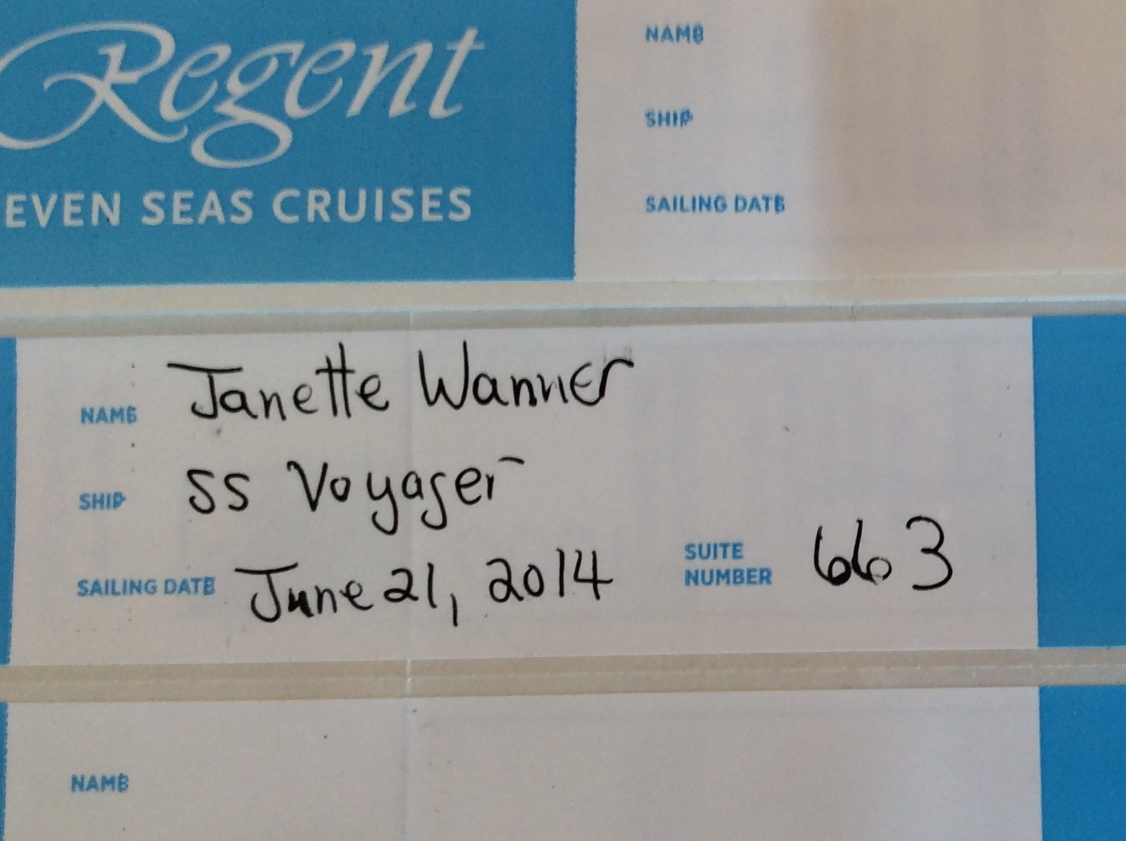 Regent
EVEN SEAS CRUISES
NAME
SHIP
SAILING DATE
NAME Janette Wanner
SHIP SS Voyager
SAILING DATE June 21, 2014 SUITE NUMBER 663
NAME